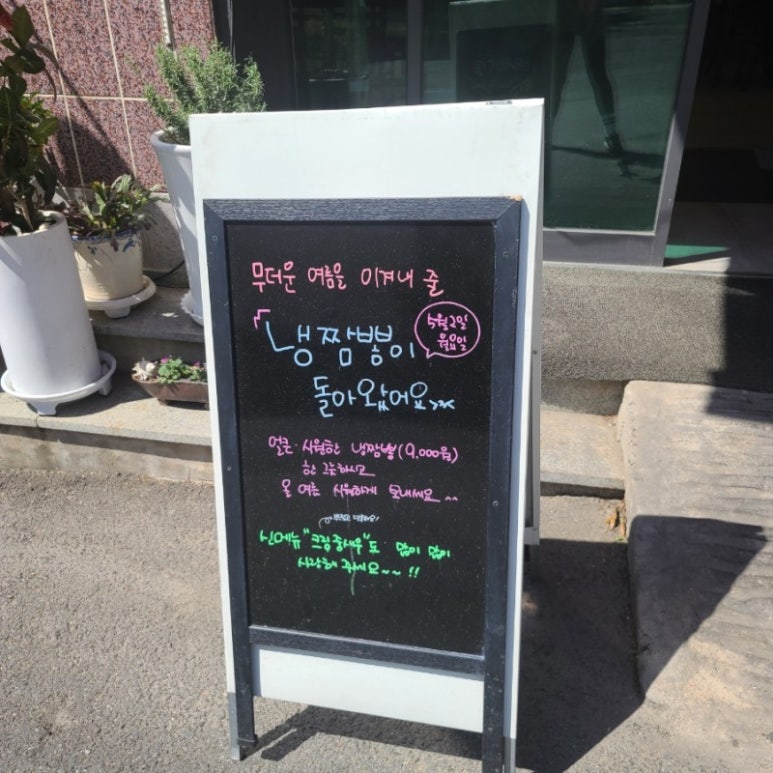 무더운 여름을 이겨내 줄
5월 2일
월요일
냉짬뽕이
돌아왔어요
얼큰·시원한 냉짬뽕(9,000원)
한 그릇하시고
올 여름 시원하게 보내세요~~
신메뉴 "크림중새우"도 많이 많이
사랑해 주세요~~!!